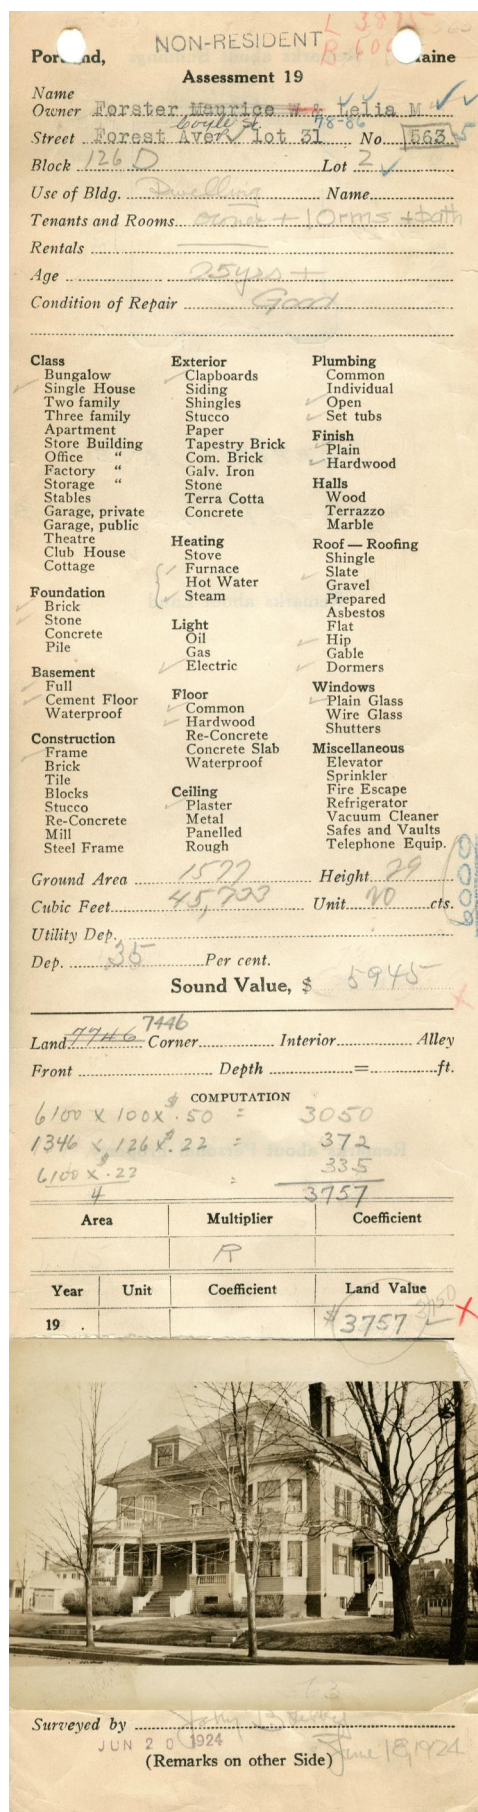 L 3875
NON-RESIDENT
Portland, Maine
Assessment 19
Name
Owner Forster Maurice W & Lelia M
Coyle St. 78-86
Street Forest Ave lot 31 No. 563 5
Block 126 D Lot 2
Use of Bldg. Dwelling Name
Tenants and Rooms owner + 10 rms + bath
Rentals
Age 25 yrs +
Condition of Repair Good
Class
Bungalow
Single House
Two family
Three family
Apartment
Store Building
Office "
Factory "
Storage "
Stables
Garage, private
Garage, public
Theatre
Club House
Cottage
Foundation
Brick
Stone
Concrete
Pile
Basement
Full
Cement Floor
Waterproof
Construction
Frame
Brick
Tile
Blocks
Stucco
Re-Concrete
Mill
Steel Frame
Exterior
Clapboards
Siding
Shingles
Stucco
Paper
Tapestry Brick
Com. Brick
Galv. Iron
Stone
Terra Cotta
Concrete
Heating
Stove
Furnace
Hot Water
Steam
Light
Oil
Gas
Electric
Floor
Common
Hardwood
Re-Concrete
Concrete Slab
Waterproof
Ceiling
Plaster
Metal
Panelled
Rough
Plumbing
Common
Individual
Open
Set tubs
Finish
Plain
Hardwood
Halls
Wood
Terrazzo
Marble
Roof — Roofing
Shingle
Slate
Gravel
Prepared
Asbestos
Flat
Hip
Gable
Dormers
Windows
Plain Glass
Wire Glass
Shutters
Miscellaneous
Elevator
Sprinkler
Fire Escape
Refrigerator
Vacuum Cleaner
Safes and Vaults
Telephone Equip.
6000
Ground Area 1577 Height 29
Cubic Feet 45,733 Unit 20 cts.
Utility Dep.
Dep. 35 Per cent.
Sound Value, $ 5945
7446
Land 7746 Corner Interior Alley
Front Depth = ft.
COMPUTATION
6100 x 100 x $.50 = 3050
1346 x 126 x $.22 = 372
6100 x $.22 = 335
4 3757
Area Multiplier Coefficient
R
Year Unit Coefficient Land Value
3750
19 . $3757
Surveyed by
JUN 20 1924
June 18, 1924
(Remarks on other Side)